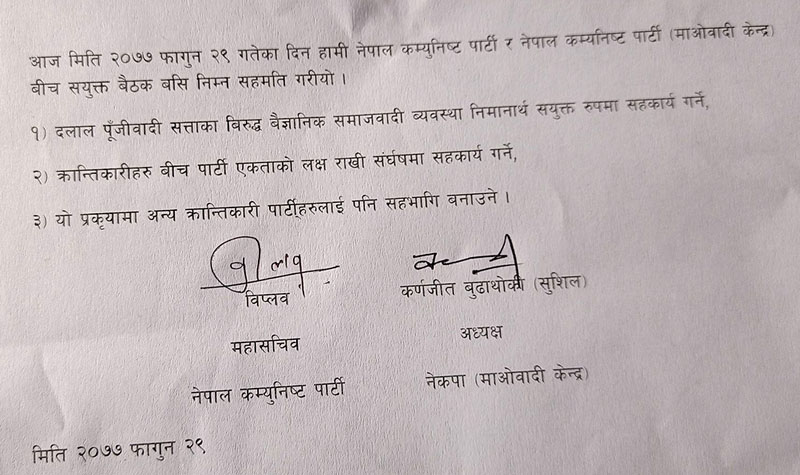 आज मिति २०७७ फागुन २९ गतेका दिन हामी नेपाल कम्युनिष्ट पार्टी र नेपाल कम्यनिष्ट पार्टी (माओवादी केन्द्र)
बीच सयुक्त बैठक बसि निम्न सहमति गरीयो ।
१) दलाल पूँजीवादी सत्ताका विरुद्ध बैज्ञानिक समाजवादी व्यवस्था निमानार्थ सयुक्त रुपमा सहकार्य गर्ने,
२) क्रान्तिकारीहरु बीच पार्टी एकताको लक्ष राखी संर्घषमा सहकार्य गर्ने,
३) यो प्रकृयामा अन्य क्रान्तिकारी पार्टीहरुलाई पनि सहभागि बनाउने ।
विप्लव
कर्णजीत बुढाथोकी (सुशिल)
महासचिव
अध्यक्ष
नेपाल कम्युनिष्ट पार्टी
नेकपा (माओवादी केन्द्र)
मिति २०७७ फागुन २९